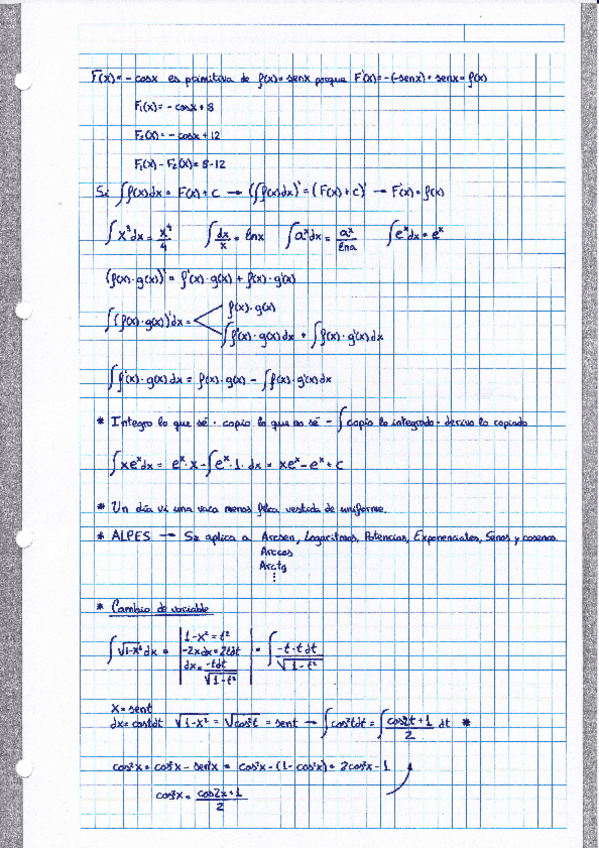 F(x) = - cosx es primitiva de f(x) = senx porque F'(x) = -(-senx) = senx = f(x)
F₁(x) = - cosx + 8
F₂(x) = - cosx + 12
F₁(x) - F₂(x) = 8 - 12
Si ∫f(x)dx = F(x) + C → (∫f(x)dx)' = (F(x) + C)' → F'(x) = f(x)
∫x³dx = x⁴/4   ∫dx/x = lnx   ∫aˣdx = aˣ/lna   ∫eˣdx = eˣ
(f(x)·g(x))' = f'(x)·g(x) + f(x)·g'(x)
∫(f(x)·g(x))'dx =
f(x)·g(x)
∫f'(x)·g(x)dx + ∫f(x)·g'(x)dx
∫f'(x)·g(x)dx = f(x)·g(x) - ∫f(x)·g'(x)dx
* Integro lo que sé · copio lo que no sé - ∫copio lo integrado · derivo lo copiado
∫xeˣdx = eˣ·x - ∫eˣ·1·dx = xeˣ - eˣ + C
* Un día vi una vaca menos flaca vestida de uniforme.
* ALPES → Se aplica a Arcsen, Logaritmos, Potencias, Exponenciales, Senos y cosenos.
Arccos
Arctg
⋮
* Cambio de variable
∫√1-x² dx = | 1-x² = t² | = ∫ -t·t dt / √1-t²
-2xdx = 2tdt
dx = -tdt / √1-t²
x = sent
dx = costdt   √1-x² = √cos²t = sent → ∫cos²tdt = ∫ cos2t+1 / 2 dt *
cos²x = cos²x - sen²x = cos²x - (1-cos²x) = 2cos²x - 1
cos²x = cos2x+1 / 2